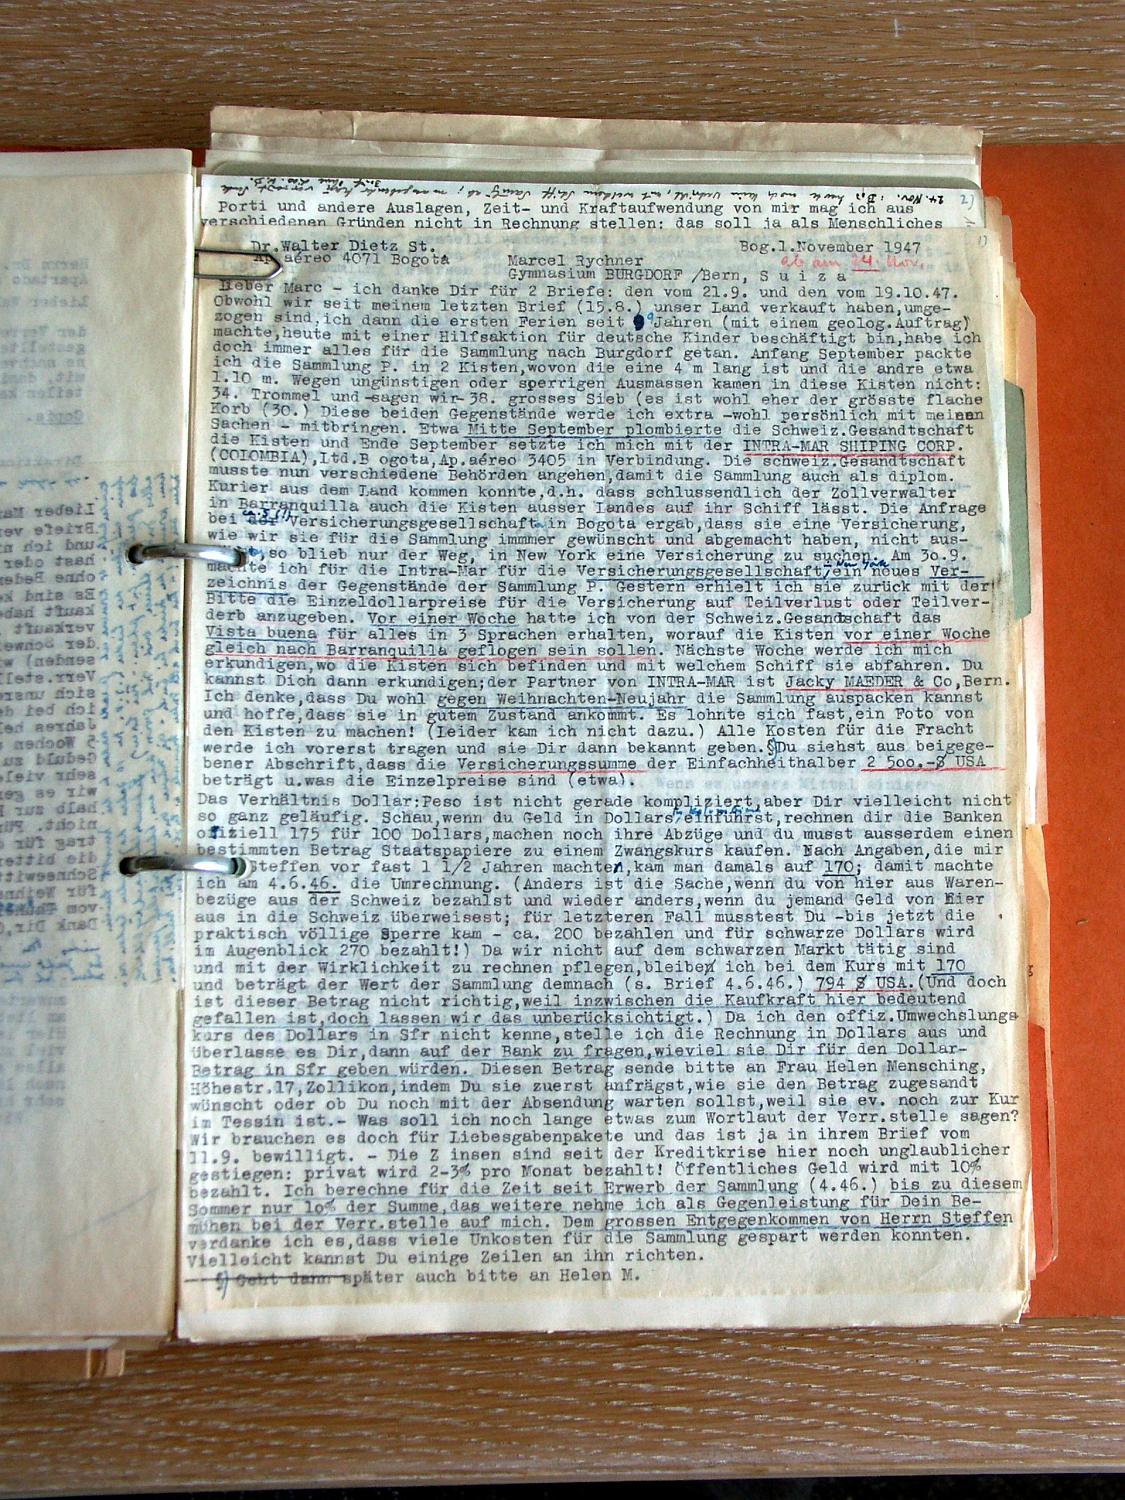 24. Nov.:
2)
Porti und andere Auslagen, Zeit- und Kraftaufwendung von mir mag ich aus
verschiedenen Gründen nicht in Rechnung stellen: das soll ja als Menschliches
1)
Dr.Walter Dietz St. Bog.1.November 1947
Ap.aéreo 4071 Bogotá Marcel Rychner ab am 24. Nov.
Gymnasium BURGDORF /Bern, S u i z a
Lieber Marc - ich danke Dir für 2 Briefe: den vom 21.9. und den vom 19.10.47.
Obwohl wir seit meinem letzten Brief (15.8.) unser Land verkauft haben,umge-
zogen sind,ich dann die ersten Ferien seit 9 Jahren (mit einem geolog.Auftrag)
machte,heute mit einer Hilfsaktion für deutsche Kinder beschäftigt bin,habe ich
doch immer alles für die Sammlung nach Burgdorf getan. Anfang September packte
ich die Sammlung P. in 2 Kisten,wovon die eine 4 m lang ist und die andre etwa
1.10 m. Wegen ungünstigen oder sperrigen Ausmassen kamen in diese Kisten nicht:
34. Trommel und -sagen wir- 38. grosses Sieb (es ist wohl eher der grösste flache
Korb (30.) Diese beiden Gegenstände werde ich extra -wohl persönlich mit meinen
Sachen - mitbringen. Etwa Mitte September plombierte die Schweiz.Gesandtschaft
die Kisten und Ende September setzte ich mich mit der INTRA-MAR SHIPING CORP.
(COLOMBIA),Ltd.B ogota,Ap.aéreo 3405 in Verbindung. Die schweiz.Gesandtschaft
musste nun verschiedene Behörden angehen,damit die Sammlung auch als diplom.
Kurier aus dem Land kommen konnte,d.h. dass schlussendlich der Zollverwalter
in Barranquilla auch die Kisten ausser Landes auf ihr Schiff lässt. Die Anfrage
bei Versicherungsgesellschaft in Bogota ergab,dass sie eine Versicherung,
wie wir sie für die Sammlung immmer gewünscht und abgemacht haben, nicht aus-
so blieb nur der Weg, in New York eine Versicherung zu suchen. Am 30.9.
machte ich für die Intra-Mar für die Versicherungsgesellschaft, New York ein neues Ver-
zeichnis der Gegenstände der Sammlung P. Gestern erhielt ich sie zurück mit der
Bitte die Einzeldollarpreise für die Versicherung auf Teilverlust oder Teilver-
derb anzugeben. Vor einer Woche hatte ich von der Schweiz.Gesandtschaft das
Vista buena für alles in 3 Sprachen erhalten, worauf die Kisten vor einer Woche
gleich nach Barranquilla geflogen sein sollen. Nächste Woche werde ich mich
erkundigen,wo die Kisten sich befinden und mit welchem Schiff sie abfahren. Du
kannst Dich dann erkundigen;der Partner von INTRA-MAR ist Jacky MAEDER & Co,Bern.
Ich denke,dass Du wohl gegen Weihnachten-Neujahr die Sammlung auspacken kannst
und hoffe,dass sie in gutem Zustand ankommt. Es lohnte sich fast,ein Foto von
den Kisten zu machen! (Leider kam ich nicht dazu.) Alle Kosten für die Fracht
werde ich vorerst tragen und sie Dir dann bekannt geben.§)Du siehst aus beigege-
bener Abschrift,dass die Versicherungssumme der Einfachheithalber 2 500.-$ USA
beträgt u.was die Einzelpreise sind (etwa).
Das Verhältnis Dollar:Peso ist nicht gerade kompliziert,aber Dir vielleicht nicht
so ganz geläufig. Schau,wenn du Geld in Dollars einführst,rechnen dir die Banken
offiziell 175 für 100 Dollars,machen noch ihre Abzüge und du musst ausserdem einen
bestimmten Betrag Staatspapiere zu einem Zwangskurs kaufen. Nach Angaben,die mir
Steffen vor fast 1 1/2 Jahren machten,kam man damals auf 170; damit machte
ich am 4.6.46. die Umrechnung. (Anders ist die Sache,wenn du von hier aus Waren-
bezüge aus der Schweiz bezahlst und wieder anders,wenn du jemand Geld von hier
aus in die Schweiz überweisest; für letzteren Fall musstest Du -bis jetzt die
praktisch völlige Sperre kam - ca. 200 bezahlen und für schwarze Dollars wird
im Augenblick 270 bezahlt!) Da wir nicht auf dem schwarzen Markt tätig sind
und mit der Wirklichkeit zu rechnen pflegen,bleibe ich bei dem Kurs mit 170
und beträgt der Wert der Sammlung demnach (s. Brief 4.6.46.) 794 $ USA.(Und doch
ist dieser Betrag nicht richtig,weil inzwischen die Kaufkraft hier bedeutend
gefallen ist,doch lassen wir das unberücksichtigt.) Da ich den offiz.Umwechslungs-
kurs des Dollars in Sfr nicht kenne,stelle ich die Rechnung in Dollars aus und
überlasse es Dir,dann auf der Bank zu fragen,wieviel sie Dir für den Dollar-
Betrag in Sfr geben würden. Diesen Betrag sende bitte an Frau Helen Mensching,
Höhestr.17,Zollikon,indem Du sie zuerst anfrägst,wie sie den Betrag zugesandt
wünscht oder ob Du noch mit der Absendung warten sollst,weil sie ev. noch zur Kur
im Tessin ist.- Was soll ich noch lange etwas zum Wortlaut der Verr.stelle sagen?
Wir brauchen es doch für Liebesgabenpakete und das ist ja in ihrem Brief vom
11.9. bewilligt. - Die Z insen sind seit der Kreditkrise hier noch unglaublicher
gestiegen: privat wird 2-3% pro Monat bezahlt! Öffentliches Geld wird mit 10%
bezahlt. Ich berechne für die Zeit seit Erwerb der Sammlung (4.46.) bis zu diesem
Sommer nur 10% der Summe,das weitere nehme ich als Gegenleistung für Dein Be-
mühen bei der Verr.stelle auf mich. Dem grossen Entgegenkommen von Herrn Steffen
verdanke ich es,dass viele Unkosten für die Sammlung gespart werden konnten.
Vielleicht kannst Du einige Zeilen an ihn richten.
§) Geht dann später auch bitte an Helen M.